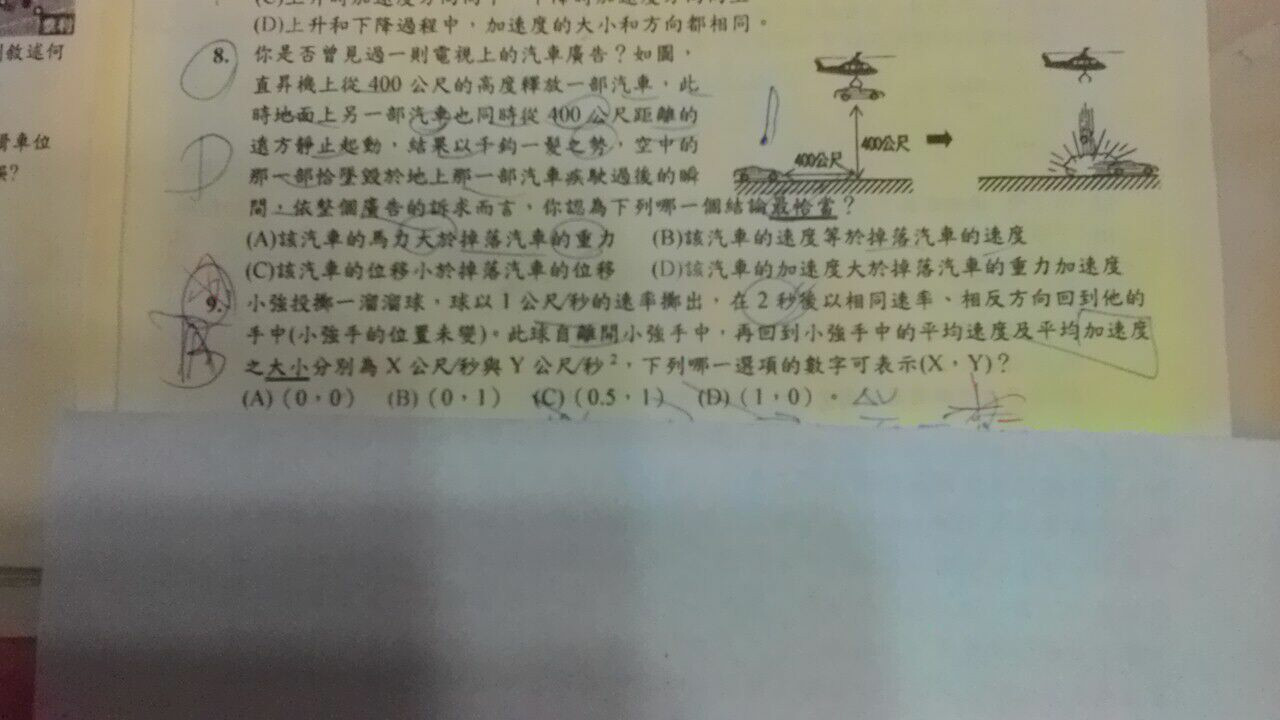 (D)上升和下降過程中，加速度的大小和方向都相同。
敘述何
8. 你是否曾見過一則電視上的汽車廣告？如圖，
直昇機上從 400 公尺的高度釋放一部汽車，此
時地面上另一部汽車也同時從 400 公尺距離的
遠方靜止起動，結果以千鈞一髮之勢，空中的
那一部恰墜毀於地上那一部汽車疾駛過後的瞬
間，依整個廣告的訴求而言，你認為下列哪一個結論最恰當？
400公尺
400公尺
車位
(A)該汽車的馬力大於掉落汽車的重力 (B)該汽車的速度等於掉落汽車的速度
(C)該汽車的位移小於掉落汽車的位移 (D)該汽車的加速度大於掉落汽車的重力加速度
D
9. 小強投擲一溜溜球，球以 1 公尺/秒的速率擲出，在 2 秒後以相同速率、相反方向回到他的
手中(小強手的位置未變)。此球自離開小強手中，再回到小強手中的平均速度及平均加速度
之大小分別為 X 公尺/秒與 Y 公尺/秒²，下列哪一選項的數字可表示(X，Y)？
(A)（0，0） (B)（0，1） (C)（0.5，1） (D)（1，0）。
ΔV